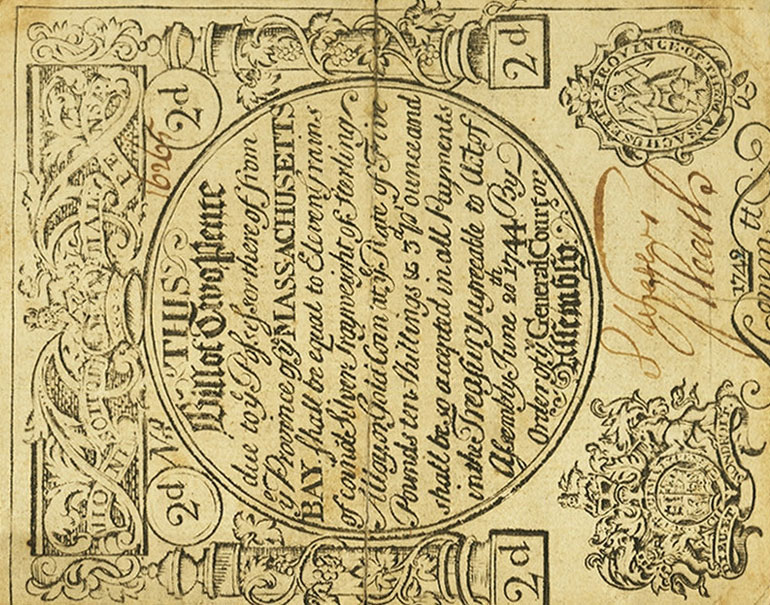 HONI SOIT QUI MAL Y PENSE
2d No. 2d
THIS
Bill of Two Pence
due to yͤ Possessor thereof from
yͤ Province of yͤ MASSACHUSETTS
BAY shall be equal to Eleven grains
of coin'd Silver troy weight of sterling
Alloy, or Gold Coin at yͤ Rate of Five
Pounds ten shillings & 3d pr ounce and
shall be so accepted in all Payments
in the Treasury agreeable to Act of
Assembly June 20th 1744 By
Order of yͤ General Court or
Assembly.
2d 2d
PROVINCE·OF·THE·MASSACHUSETTS
1742